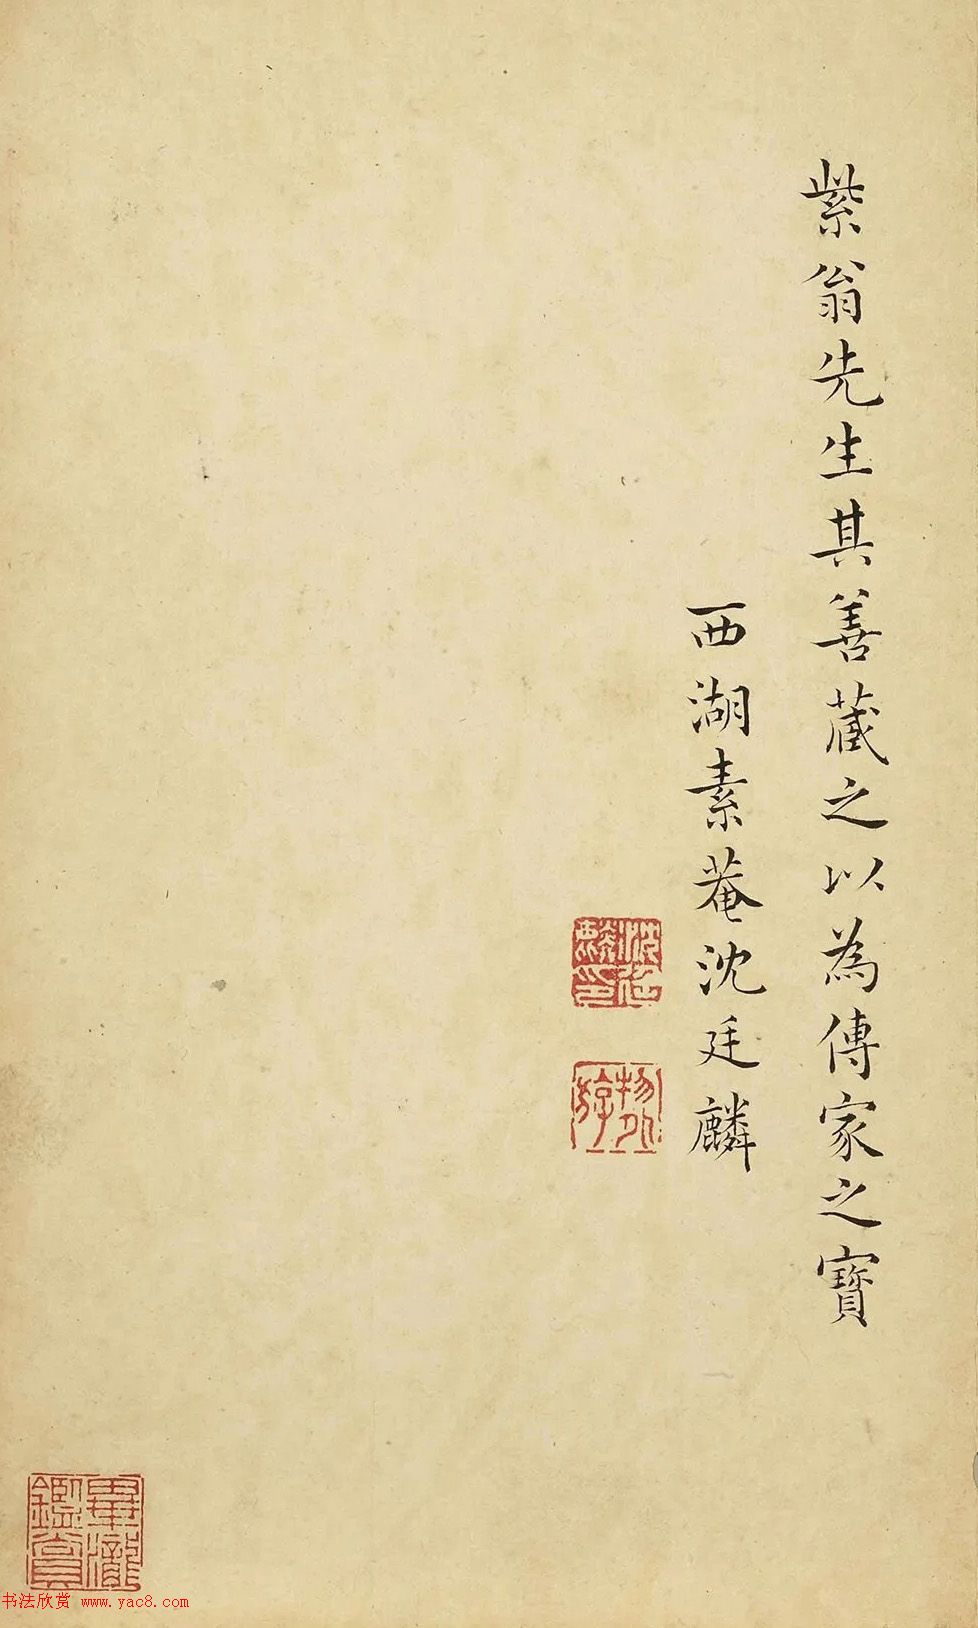 紫翁先生其善藏之以為傳家之寶
西湖素菴沈廷麟
沈廷麟印
畢瀧鑑賞
书法欣赏 www.yac8.com